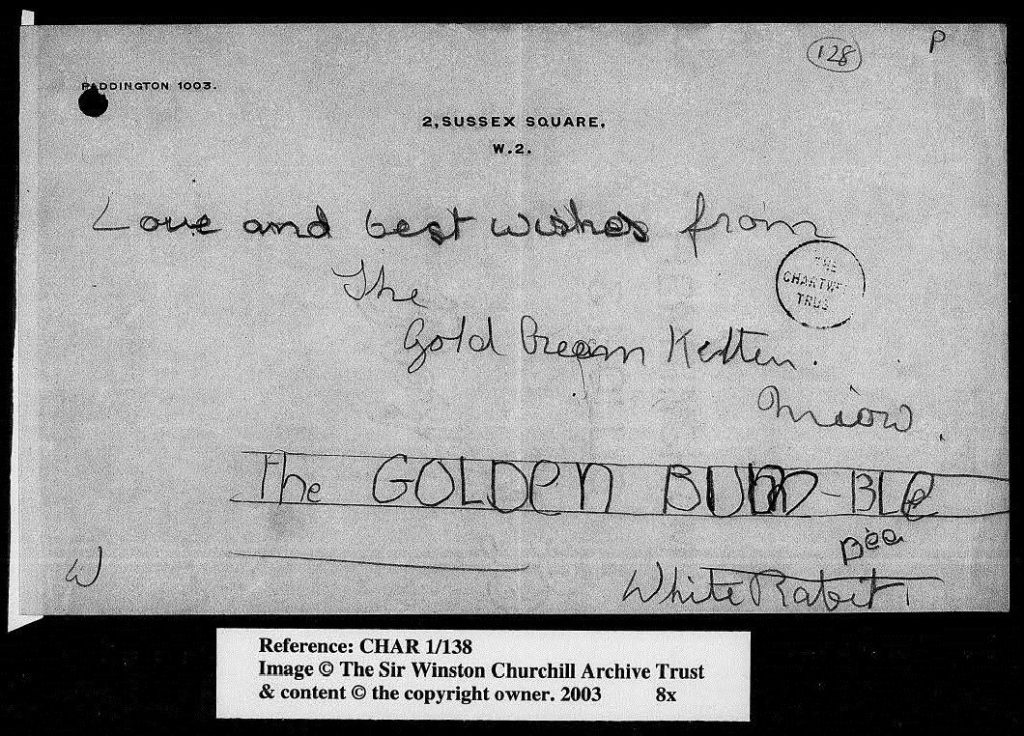 128
P
PADDINGTON 1003.
2, SUSSEX SQUARE,
W.2.
Love and best wishes from
The
THE
CHARTWE
TRUS
Gold Cream Kitten.
Miaow.
The GOLDen BUM-BLe
Bee
W
White Rabit
Reference: CHAR 1/138
Image © The Sir Winston Churchill Archive Trust
& content © the copyright owner. 2003 8x